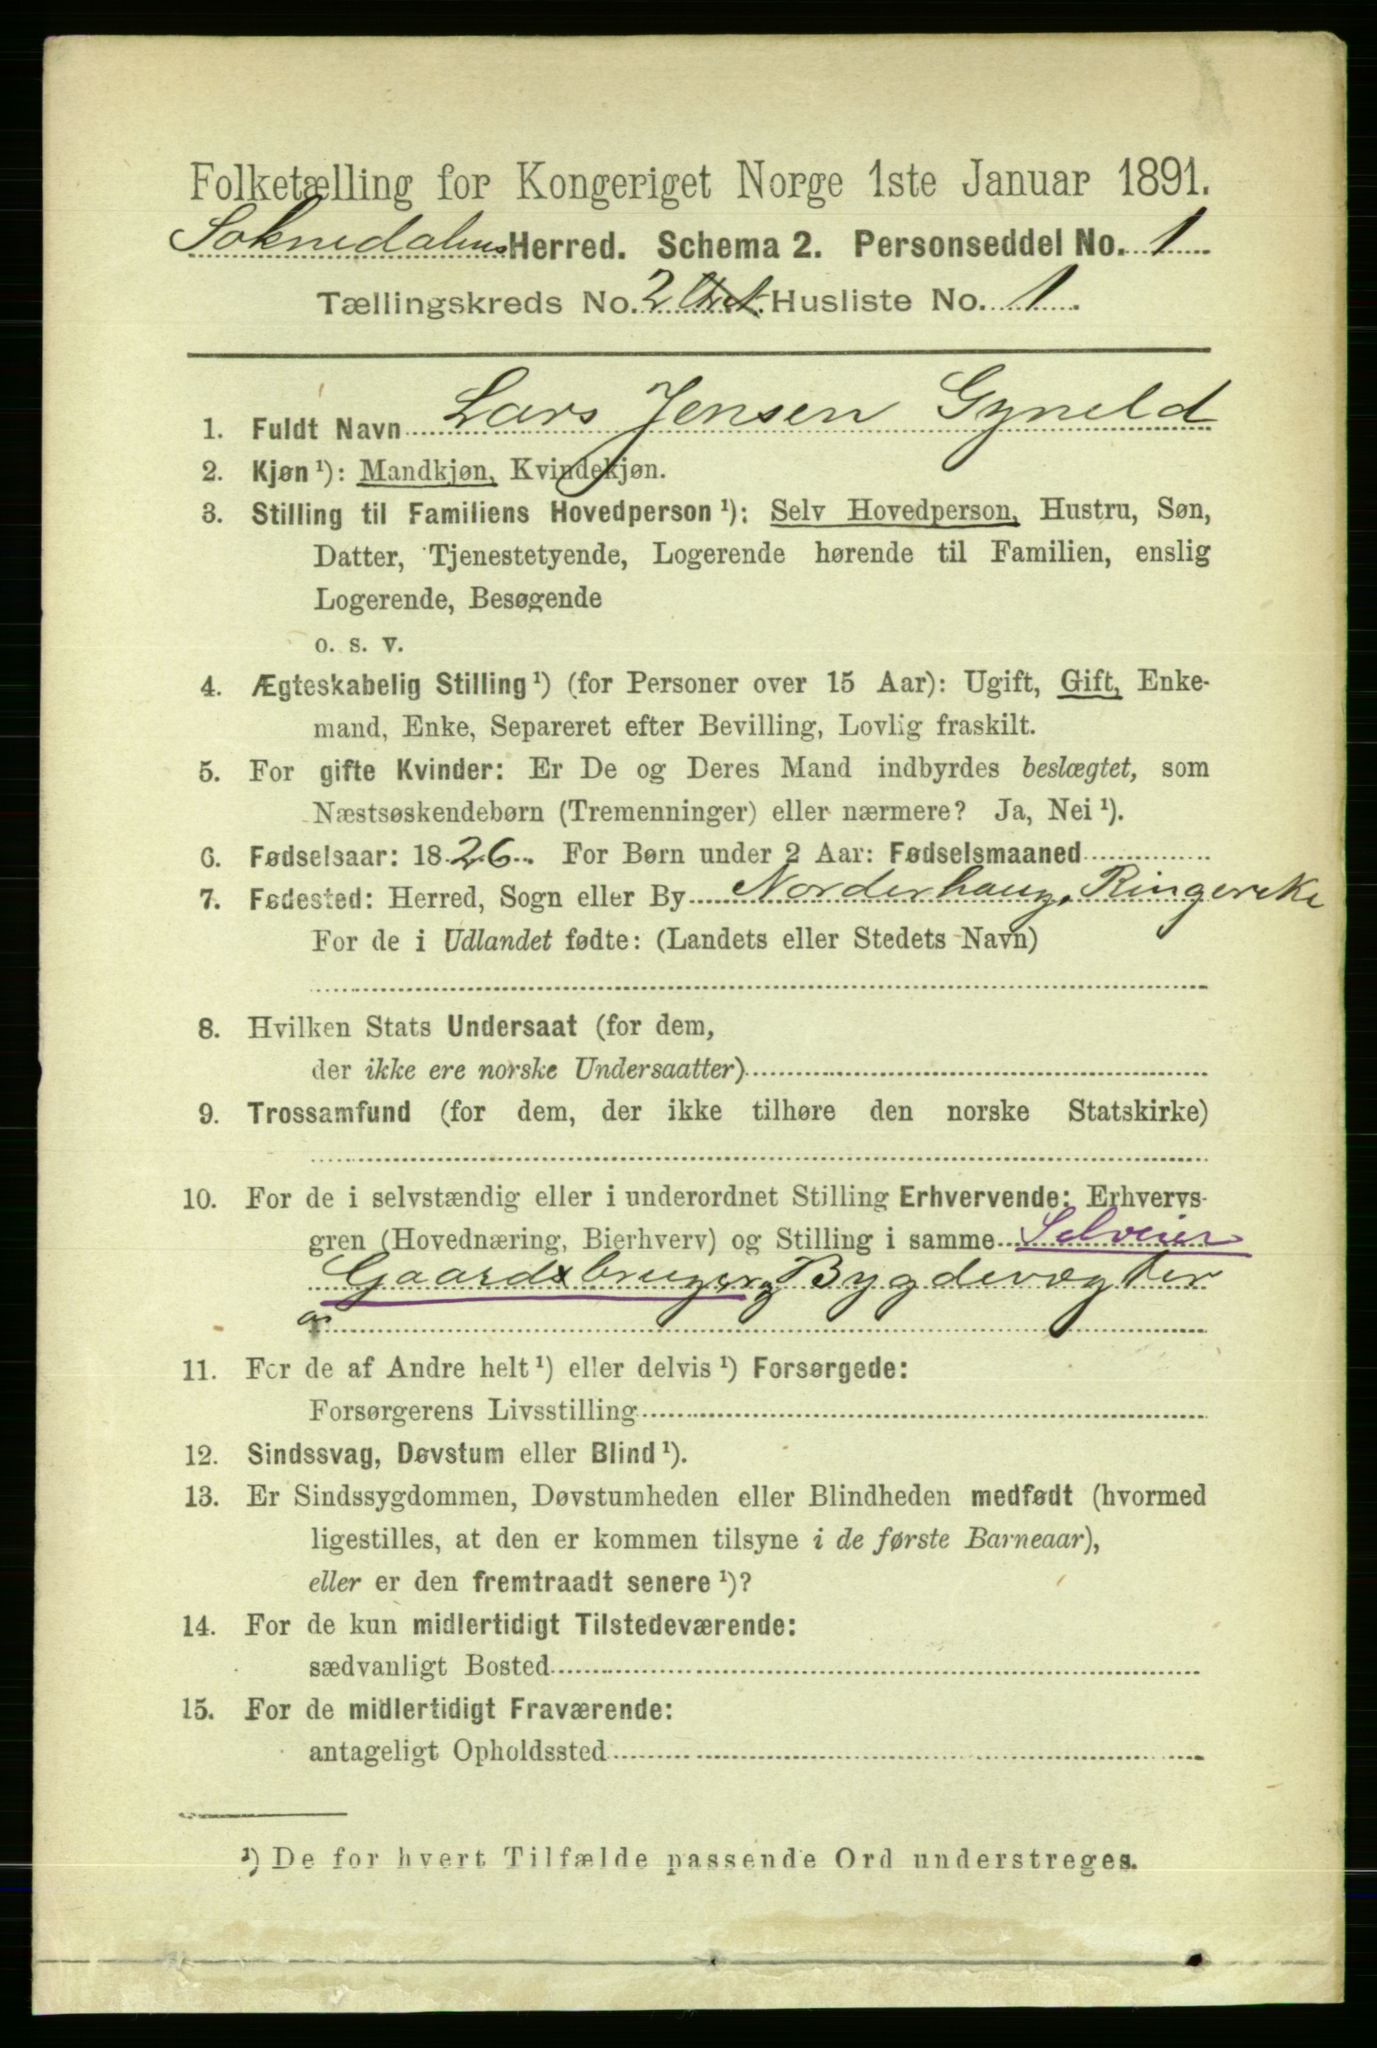 Folketælling for Kongeriget Norge 1ste Januar 1891.
Soknedalens Herred. Schema 2. Personseddel No. 1
Tællingskreds No. 2 Husliste No. 1
1. Fuldt Navn Lars Jensen Gyneld
2. Kjøn ¹): Mandkjøn, Kvindekjøn.
3. Stilling til Familiens Hovedperson ¹): Selv Hovedperson, Hustru, Søn,
Datter, Tjenestetyende, Logerende hørende til Familien, enslig
Logerende, Besøgende
o. s. v.
4. Ægteskabelig Stilling ¹) (for Personer over 15 Aar): Ugift, Gift, Enke-
mand, Enke, Separeret efter Bevilling, Lovlig fraskilt.
5. For gifte Kvinder: Er De og Deres Mand indbyrdes beslægtet, som
Næstsøskendebørn (Tremenninger) eller nærmere? Ja, Nei ¹).
6. Fødselsaar: 1826. For Børn under 2 Aar: Fødselsmaaned
7. Fødested: Herred, Sogn eller By Norderhaug, Ringerike
For de i Udlandet fødte: (Landets eller Stedets Navn)
8. Hvilken Stats Undersaat (for dem,
der ikke ere norske Undersaatter)
9. Trossamfund (for dem, der ikke tilhøre den norske Statskirke)
10. For de i selvstændig eller i underordnet Stilling Erhvervende: Erhvervs-
gren (Hovednæring, Bierhverv) og Stilling i samme Selveier
Gaardbruger, Bygdevægter
11. For de af Andre helt ¹) eller delvis ¹) Forsørgede:
Forsørgerens Livsstilling
12. Sindssvag, Døvstum eller Blind ¹).
13. Er Sindssygdommen, Døvstumheden eller Blindheden medfødt (hvormed
ligestilles, at den er kommen tilsyne i de første Barneaar),
eller er den fremtraadt senere ¹)?
14. For de kun midlertidigt Tilstedeværende:
sædvanligt Bosted
15. For de midlertidigt Fraværende:
antageligt Opholdssted
¹) De for hvert Tilfælde passende Ord understreges.